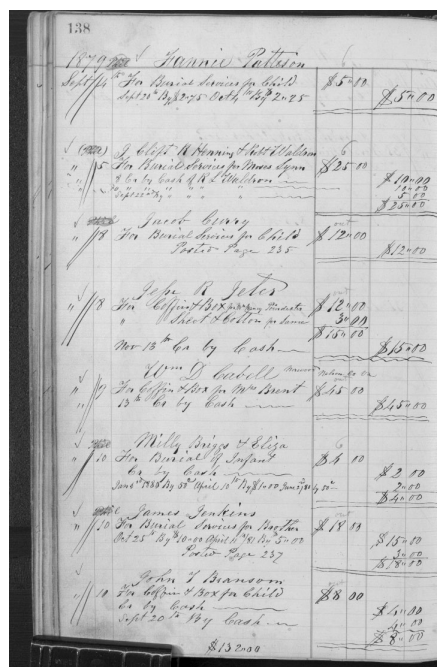 138
1879 Fannie Patteson
Sept 14th For Burial Services for Child $5"00
Sept 20th By $2.75 Octr 1st By 2"25 $5"00
J. Clift R Henning & Robt Waldron
" 5 For Burial Services for Moses Lynn $25 00
& Cr by Cash of R L Waldron $10"00
10"00
Sept 22nd By " " " 5 00
$25"00
Jacob Curry
" 8 For Burial Service for Child $12"00
Posted Page 235 $12"00
R Jeter
" 8 For Coffin & Box $12"00
" Sheet & Cotton for Same 3"00
$15"00
Nov 13th Cr by Cash $15"00
Wm D Cabell
" 9 For Coffin & Box for Mrs Brent $45"00
13th Cr by Cash $45"00
Milly Briggs & Eliza
" 10 For Burial of Infant $4 00
Cr by Cash $2 00
April 10th By $1"00 2"00
$4"00
James Jenkins
" 10 For Burial Services for Brother $18 00
Oct 25th By $10"00 April By 5"00 $15"00
3"00
Posted Page 237 $18"00
John T Bransom
" 10 For Coffin & Box for Child $8 00
Cr by Cash $4"00
Sept 20th By Cash 4"00
$8"00
$132"00